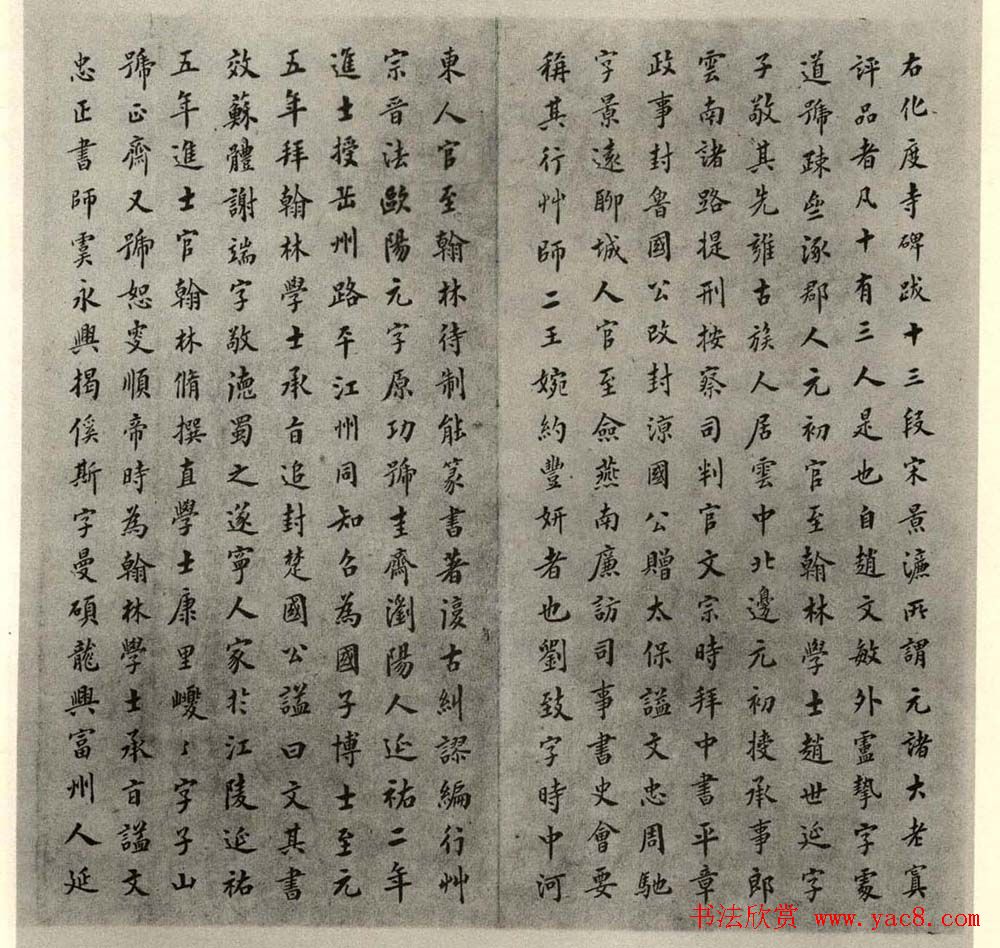 右化度寺碑跋十三段宋景濂所謂元諸大老寘
評品者凡十有三人是也自趙文敏外盧摯字處
道號疎壘涿郡人元初官至翰林學士趙世延字
子敬其先雍古族人居雲中北邊元初授承事郎
雲南諸路提刑按察司判官文宗時拜中書平章
政事封魯國公改封涼國公贈太保謚文忠周馳
字景遠聊城人官至僉燕南廉訪司事書史會要
稱其行艸師二王婉約豐妍者也劉致字時中河
東人官至翰林待制能篆書著復古糾謬編行艸
宗晋法歐陽元字原功號圭齋瀏陽人延祐二年
進士授岳州路平江州同知召為國子博士至元
五年拜翰林學士承旨追封楚國公謚曰文其書
效蘇體謝端字敬德蜀之遂寧人家於江陵延祐
五年進士官翰林脩撰直學士康里巙〻字子山
號正齋又號恕叟順帝時為翰林學士承旨謚文
忠正書師虞永興揭傒斯字曼碩龍興富州人延
书法欣赏 www.yac8.com